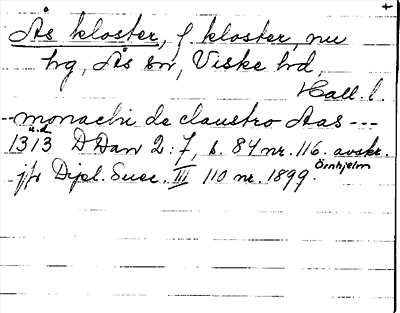 +
Ås kloster, f kloster, nu
hg, Ås sn, Viske hd,
Hall. l.
--monachi de claustro Aas---
u.d.
1313 DDan 2:7, s. 84 nr. 116. avskr.
Örnhjelm
jfr Dipl. Suec. III 110 nr. 1899.